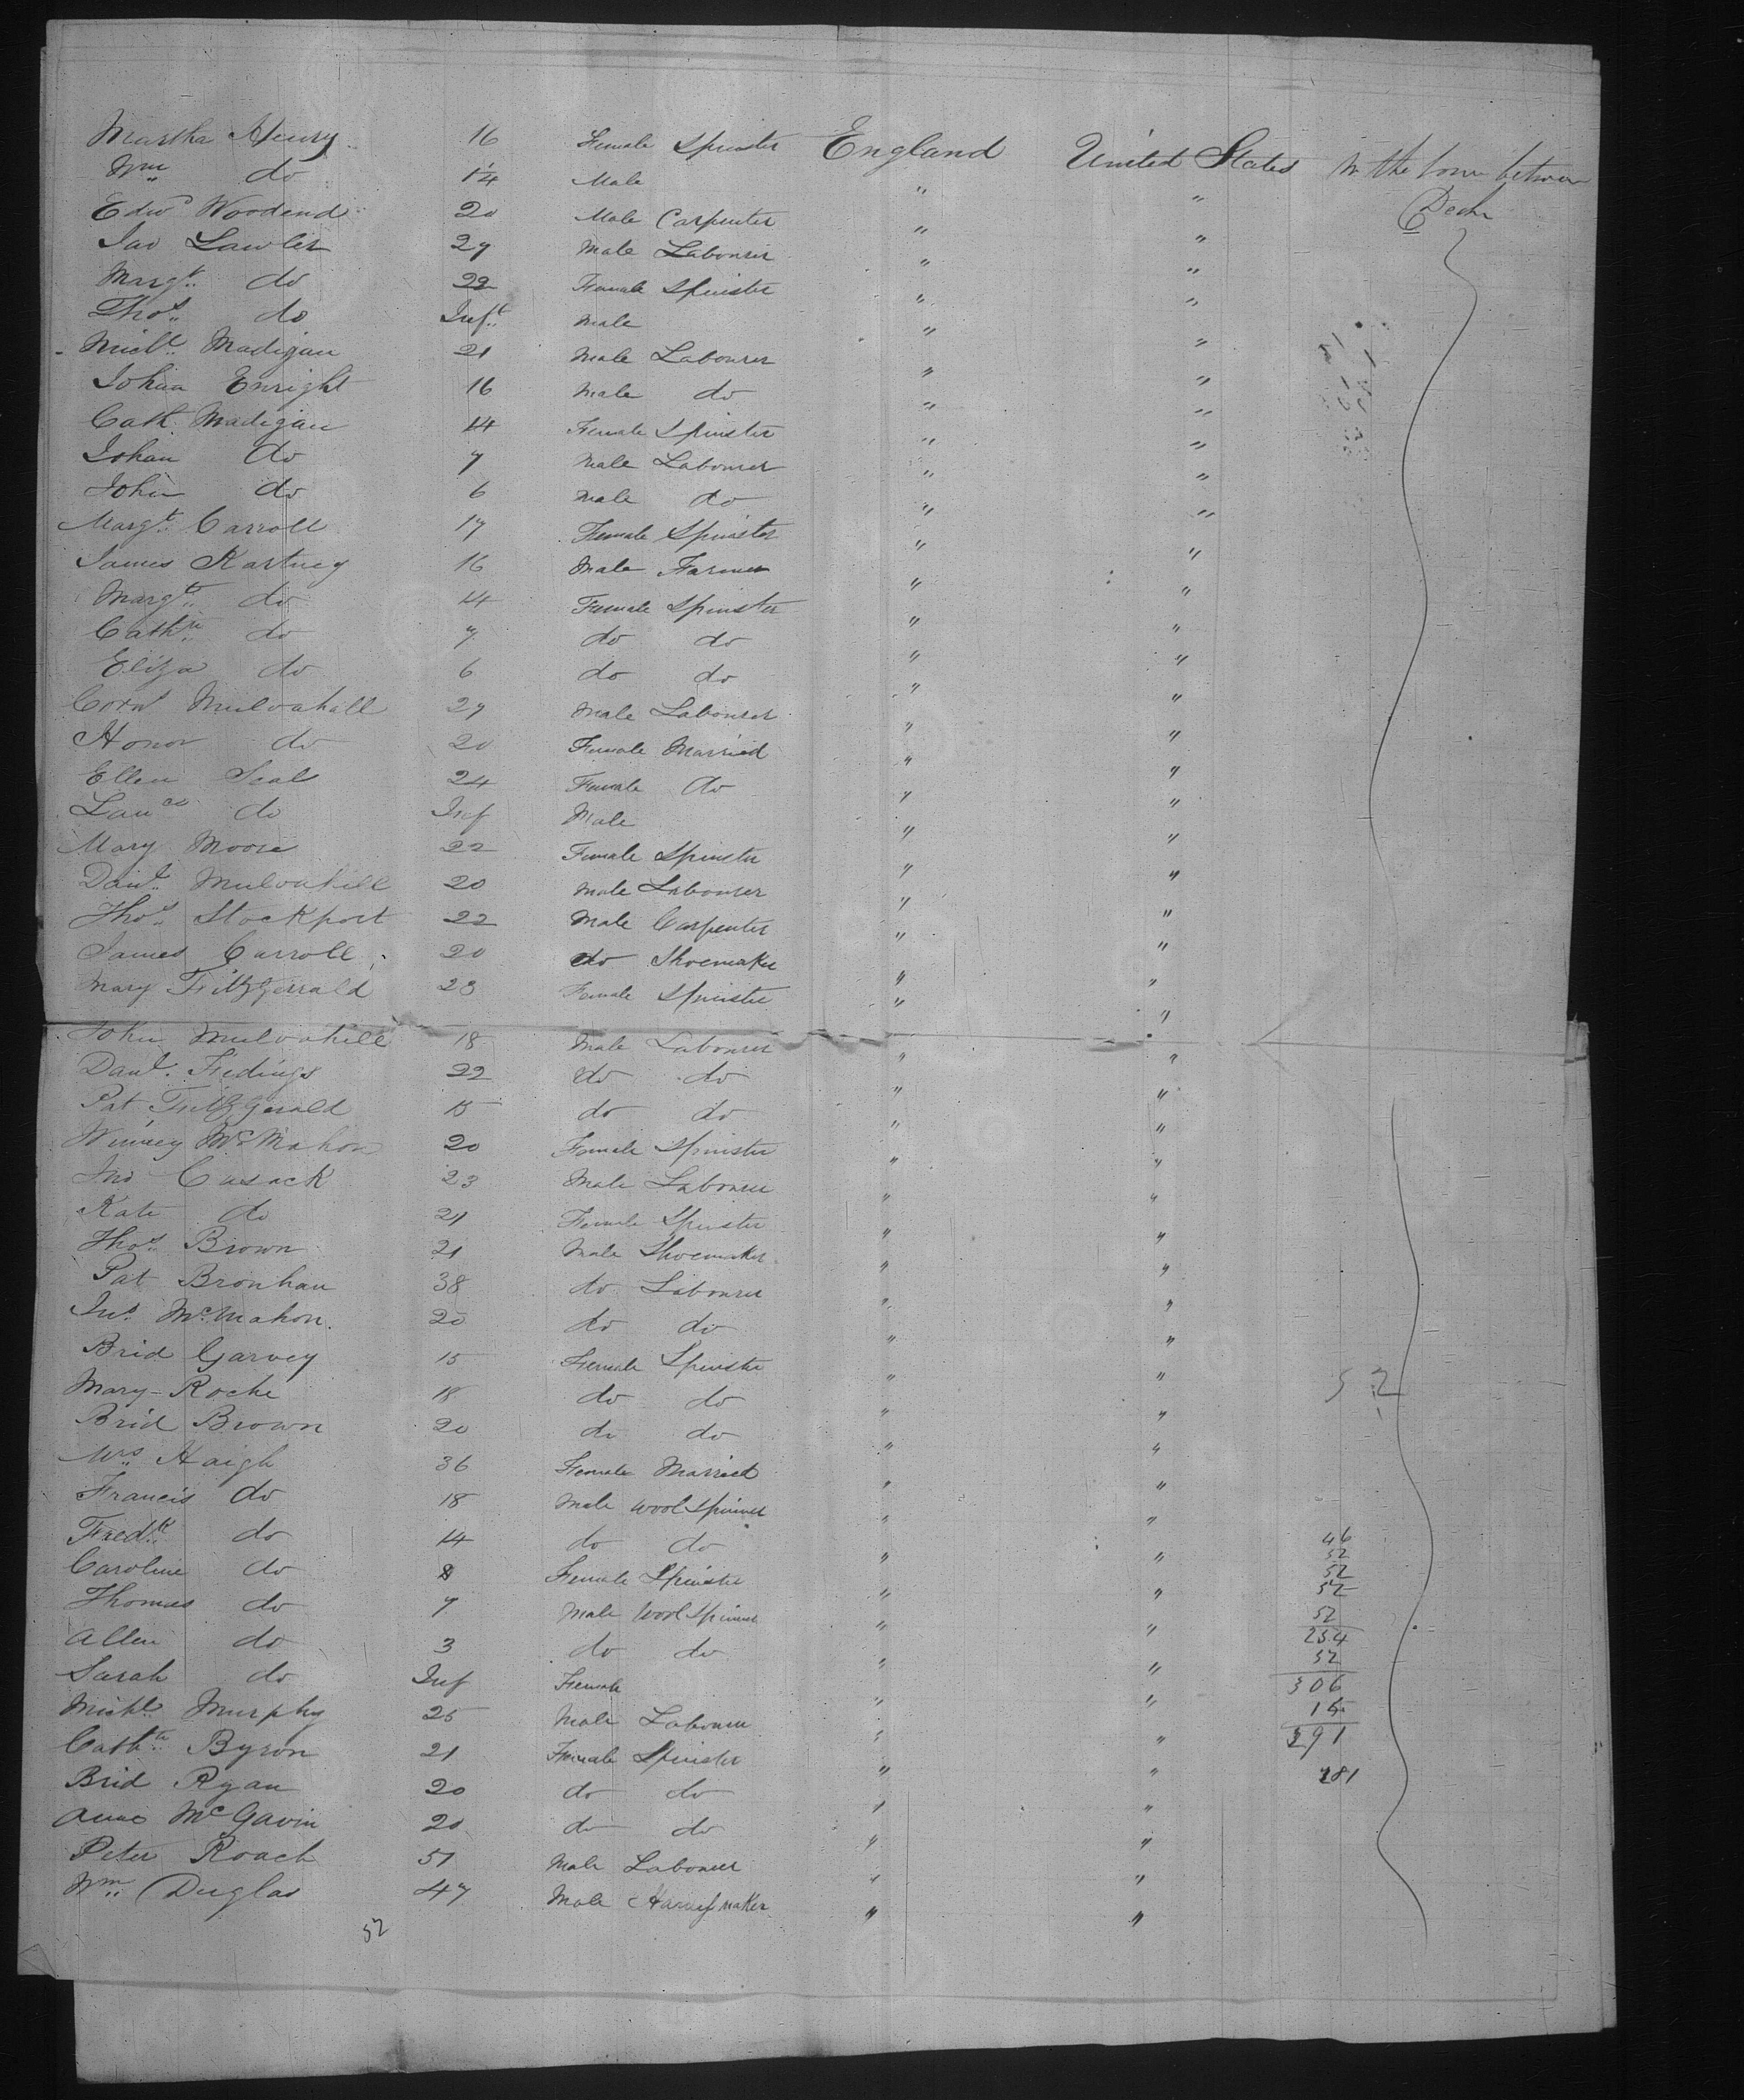 Martha Henry 16 Female Spinster England United States In the lower between
Wm do 14 Male " " Decks
Edwd Woodend 20 Male Carpenter " "
Jas Lawler 29 Male Labourer " "
Margt do 22 Female Spinster " "
Thos do Inft Male " "
Michl Madigan 21 Male Labourer " "
Johan Enright 16 Male do " "
Cath Madigan 14 Female Spinster " "
Johan do 7 Male Labourer " "
John do 6 Male do " "
Margt Carroll 17 Female Spinster " "
James Kartney 16 Male Farmer " "
Margt do 14 Female Spinster " "
Cathn do 7 do do " "
Eliza do 6 do do " "
Corns Mulvahall 27 Male Labourer " "
Honor do 20 Female Married " "
Ellen Seals 24 Female do " "
Lauce do Inf Male " "
Mary Moore 22 Female Spinster " "
Danl Mulvahill 20 Male Labourer " "
Thos Stockport 22 Male Carpenter " "
James Carroll 20 do Shoemaker " "
Mary Fitzgerrald 23 Female Spinster " "
John Mulvahill 18 Male Labourer " "
Danl. Fiedings 22 do do " "
Pat Fitzgerald 15 do do " "
Winney McMahon 20 Female Spinster " "
Jno Cusack 23 Male Labourer " "
Kate do 21 Female Spinster " "
Thos Brown 21 Male Shoemaker " "
Pat Bronhan 38 do Labourer " "
Jno. McMahon. 20 do do " "
Brid Garvey 15 Female Spinster " "
Mary Roche 18 do do " " 52
Brid Brown 20 do do " "
Mrs Haigh 36 Female Married " "
Francis do 18 Male Wool Spinner " "
Fredk do 14 do do " " 46
52
Caroline do 8 Female Spinster " " 52
52
Thomas do 7 Male Wool Spinner " " 52
Allen do 3 do do " " 254
52
Sarah do Inf Female " " 306
Michl Murphy 25 Male Labourer " " 15
Cathn Byron 21 Female Spinster " " 291
Brid Ryan 20 do do " " 281
Anne McGavin 20 do do " "
Peter Roach 51 Male Labourer " "
Wm Duglas 47 Male Harnessmaker " "
52